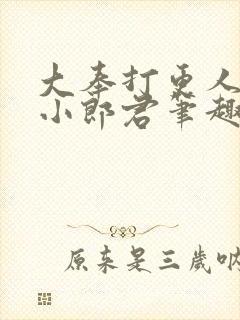 大奉打更人
小郎君笔趣
原来是三岁呐